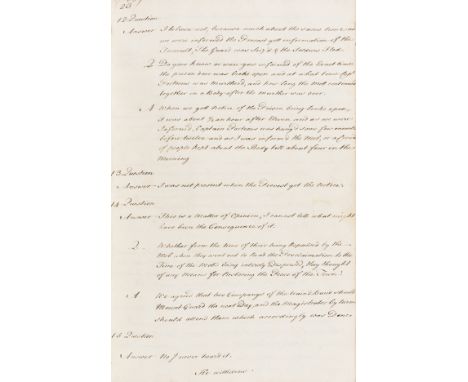 28
12 Question
Answer I beleive not, because much about the same time as
we were informed the Provost got information of the
Tumult, The Guard was Seiz'd & the Sutors Fled.
Q Do you know or were you informed of the Exact time
the prison door was broke open and at what time Capt.
Porteous was Murther'd, and how long the Mob continued
together in a Body after the Murther was over.
A When we got Notice of the Prison being broke open,
it was about ½ an hour after Eleven and as we were
Informed, Captain Porteous was hang'd some few minutes
before twelve and as I was informed the Mob, or a Crowd
of people kept about the Body till about four in the
Morning
13 Question
Answer I was not present when the Provost got the Notice.
14 Question
Answer This is a Matter of Opinion; I cannot tell what might
have been the Consequence of it.
Q. Whether from the time of their being Repulsed by the
Mob when they went out to Read the Proclamation to the
Time of the Mob's being entirely Dispersed, they thought
of any Means for Restoring the Peace of the Town?
A We agreed that two Companys of the train'd Band should
Mount Guard the next Day, and the Magistrates by turns
should attend them which accordingly was Done.
15 Question
Answer No I never heard it.
He withdrew.